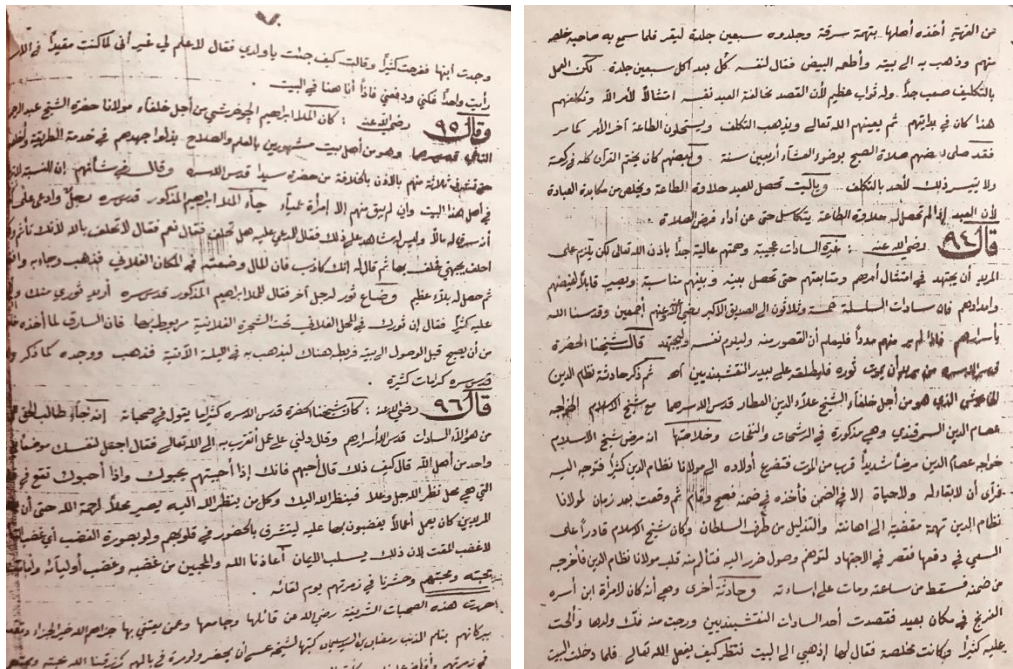 من القهتر أخذه أهلها بتهمة سرقة وجلدوه سبعين جلدة ليقر فلما سمع به صاحبه خلصه
منهم وذهب به الى بيته وأطعمه البيض فقال لنفسه كُل بعد اكل سبعين جلدة . لكن العمل
بالتكليف صعب جداً وله ثواب عظيم لأن القصد مخالفة العبد نفسه امتثالاً لأمر الله وتكلفهم
هذا كان في بدايتهم ثم يعينهم الله تعالى ويذهب التكلف ويستحلون الطاعة آخر الأمر كما مر
فقد صلى بعضهم صلاة الصبح بوضوء العشاء أربعين سنة وبعضهم كان يختم القرآن كله في ركعة
ولا يتيسر ذلك لأحد بالتكلف وياليت تحصل للعبد حلاوة الطاعة ويخلص من مكابدة العبادة
لأن العبد إذا لم تحصل له حلاوة الطاعة يتكاسل حتى عن أداء فرض الصلاة .
قال ٩٤ رضي الله عنه : غيرة السادات عجيبة وهمتهم عالية جداً باذن الله تعالى لكن يلزم على
المريد أن يجتهد في امتثال أمرهم ومتابعتهم حتى تحصل بينه وبينهم مناسبة ويصير قابلاً لفيضهم
وامدادهم فان سادات السلسلة خمسة وثلاثون الى الصديق الأكبر رضي الله عنهم أجمعين وقدسنا الله
بأسرارهم فاذا لم ير منهم مدداً فليعلم أن القصور منه وليلوم نفسه وليجتهد قال شيخنا الحضرة
قدس سره من يريد أن يموت ثوره فليطلقه على بيدر النقشبنديين اهـ ثم ذكر حادثة نظام الدين
الخاموشي الذي هو من أجل خلفاء الشيخ علاء الدين العطار قدس الله سرهما مع شيخ الاسلام الخواجه
عصام الدين السمرقندي وهي مذكورة في الرشحات والنفحات وخلاصتها انه مرض شيخ الاسلام
خواجه عصام الدين مرضاً شديداً قريباً من الموت فتضرع أولاده الى مولانا نظام الدين كثيراً فتوجه اليه
فرأى أن لا بقاء له والاحياة إلا في الضمن فأخذه في ضمنه فصح وقام ثم وقعت بعد زمان لمولانا
نظام الدين تهمة مقضية الى اهانته والتذليل من طرف السلطان وكان شيخ الاسلام قادراً على
السعي في دفعها فقصر في الاجتهاد لتوهم وصول ضرر اليه فتألم منه قلب مولانا نظام الدين فأخرجه
من ضمنه فسقط من ساعته ومات على اسادته وحادثة أخرى وهي أنه كان لامرأة ابن أسره
الفرنج في مكان بعيد فقصدت أحد السادات النقشبنديين ورجت منه فك ولدها وألحت
عليه كثيراً وكانت مخلصة فقال لها إذهبي الى البيت ننتظر كيف يفعل الله تعالى فلما دخلت البيت
٧٠
وجدت ابنها ففرحت كثيراً وقالت كيف جئت ياولدي فقال لا علم لي غير أني لما كنت مقيداً في الأسر
رأيت واحداً فكني ودفعني فاذا أنا هنا في البيت .
وقال ٩٥ رضي الله عنه : كان الملا ابراهيم الجوخرشي من أجل خلفاء مولانا حضرة الشيخ عبد الرحمن
التاغي قدس سرهما وهو من أهل بيت مشهورين بالعلم والصلاح بذلوا جهدهم في خدمة الطريقة
حتى تشرف ثلاثة منهم بالاذن بالخلافة من حضرة سيدا قدس الله سره وقال في شأنهم إن النسبة
في أهل هذا البيت وان لم يبق منهم إلا إمرأة عمياء جاء الملا ابراهيم المذكور قدس سره رجل وادعى على
أنه سرق له مالاً وليس له شاهد على ذلك فقال للمدعي عليه هل تحلف فقال نعم فقال لا تحلف بالله لأنك تأثم
احلف بجبهتي فحلف بها ثم قال له انك كاذب فان المال وضعته في المكان الفلاني فذهب وجاء به
ثم حصل له بلاء عظيم وضاع ثور لرجل آخر فقال للملا ابراهيم المذكور قدس سره أريد ثوري منك
عليه كثيراً فقال إن ثورك في المحل الفلاني تحت الشجرة الفلانية مربوط بها فان السارق لما أخذه
من أن يصبح قبل الوصول الى بيته فربطه هناك ليذهب به في الليلة الآتية فذهب ووجده كما ذكر
قدس سره كرامات كثيرة .
قال ٩٦ رضي الله عنه : كان شيخنا الحضرة قدس الله سره كثيراً ما يقول في صحباته إنه جاء طالب الحق
من هؤلاء السادات قدس الله أسرارهم وقال دلني على عمل أتقرب به الى الله تعالى فقال اجعل لنفسك موضعاً
واحد من أهل الله قال كيف ذلك قال أحبهم فانك إذا أحببتهم يحبوك واذا أحبوك تقع في
التي هي محل نظر الله جل وعلا فينظر الله اليك وكل من ينظر الله اليه يصير محلاً لرحمة الله حتى أن
المريدين كان يعمل أعمالاً يغضبون بها عليه ليتشرف بالحضور في قلوبهم ولو بصورة الغضب أي
لا غضب المقت لأن ذلك يسلب الايمان أعاذنا الله والمحبين من غضبه وغضب أوليائه
محبته ومحبتهم وحشرنا في زمرتهم يوم لقائه .
هذه الصحبات الشريفة رضي الله عن قائلها وجامعها وعمن يعتني بها جزاهم الله خير الجزاء
ببركاتهم بقلم المذنب رمضان بن كتبها لشيخه عسى أن يحضر ولو مرة في بالهم
في زمرتهم